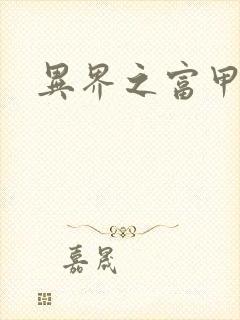 異界之富甲
嘉晟